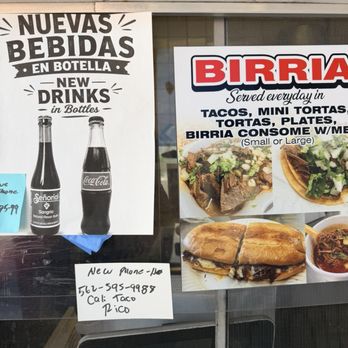 NUEVAS
BEBIDAS
EN BOTELLA
NEW
DRINKS
in Bottles
Señorial
Sangria
Coca-Cola
BIRRIA
Served everyday in
TACOS, MINI TORTAS,
TORTAS, PLATES,
BIRRIA CONSOME W/ME
(Small or Large)
New Phone
562-595-9988
Cali Taco
Rico